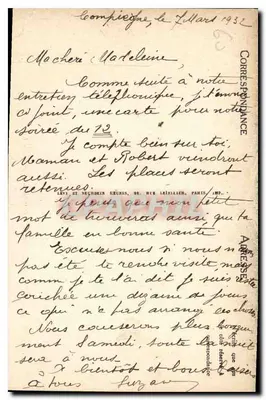 Compiègne, le 7 Mars 1932
Ma chère Madeleine,
Comme suite à notre
entretien téléphonique, je t'envoie
ci joint, une carte pour notre
soirée du 12.
Je compte bien sur toi,
Maman et Robert viendront
aussi. Les places seront
retenues.
petit
mot te trouvera ainsi que ta
famille en bonne santé
Excuse nous si nous n'avons
pas été te rendre visite, mais
comme je te l'ai dit je suis restée
couchée une dizaine de jours
ce qui n'a pas arrangé les choses.
Nous causerons plus longue
ment Samedi, toute la nuit
sera à nous
A bientôt et bons baisers
à tous Suzanne
CORRESPONDANCE
ADRESSE